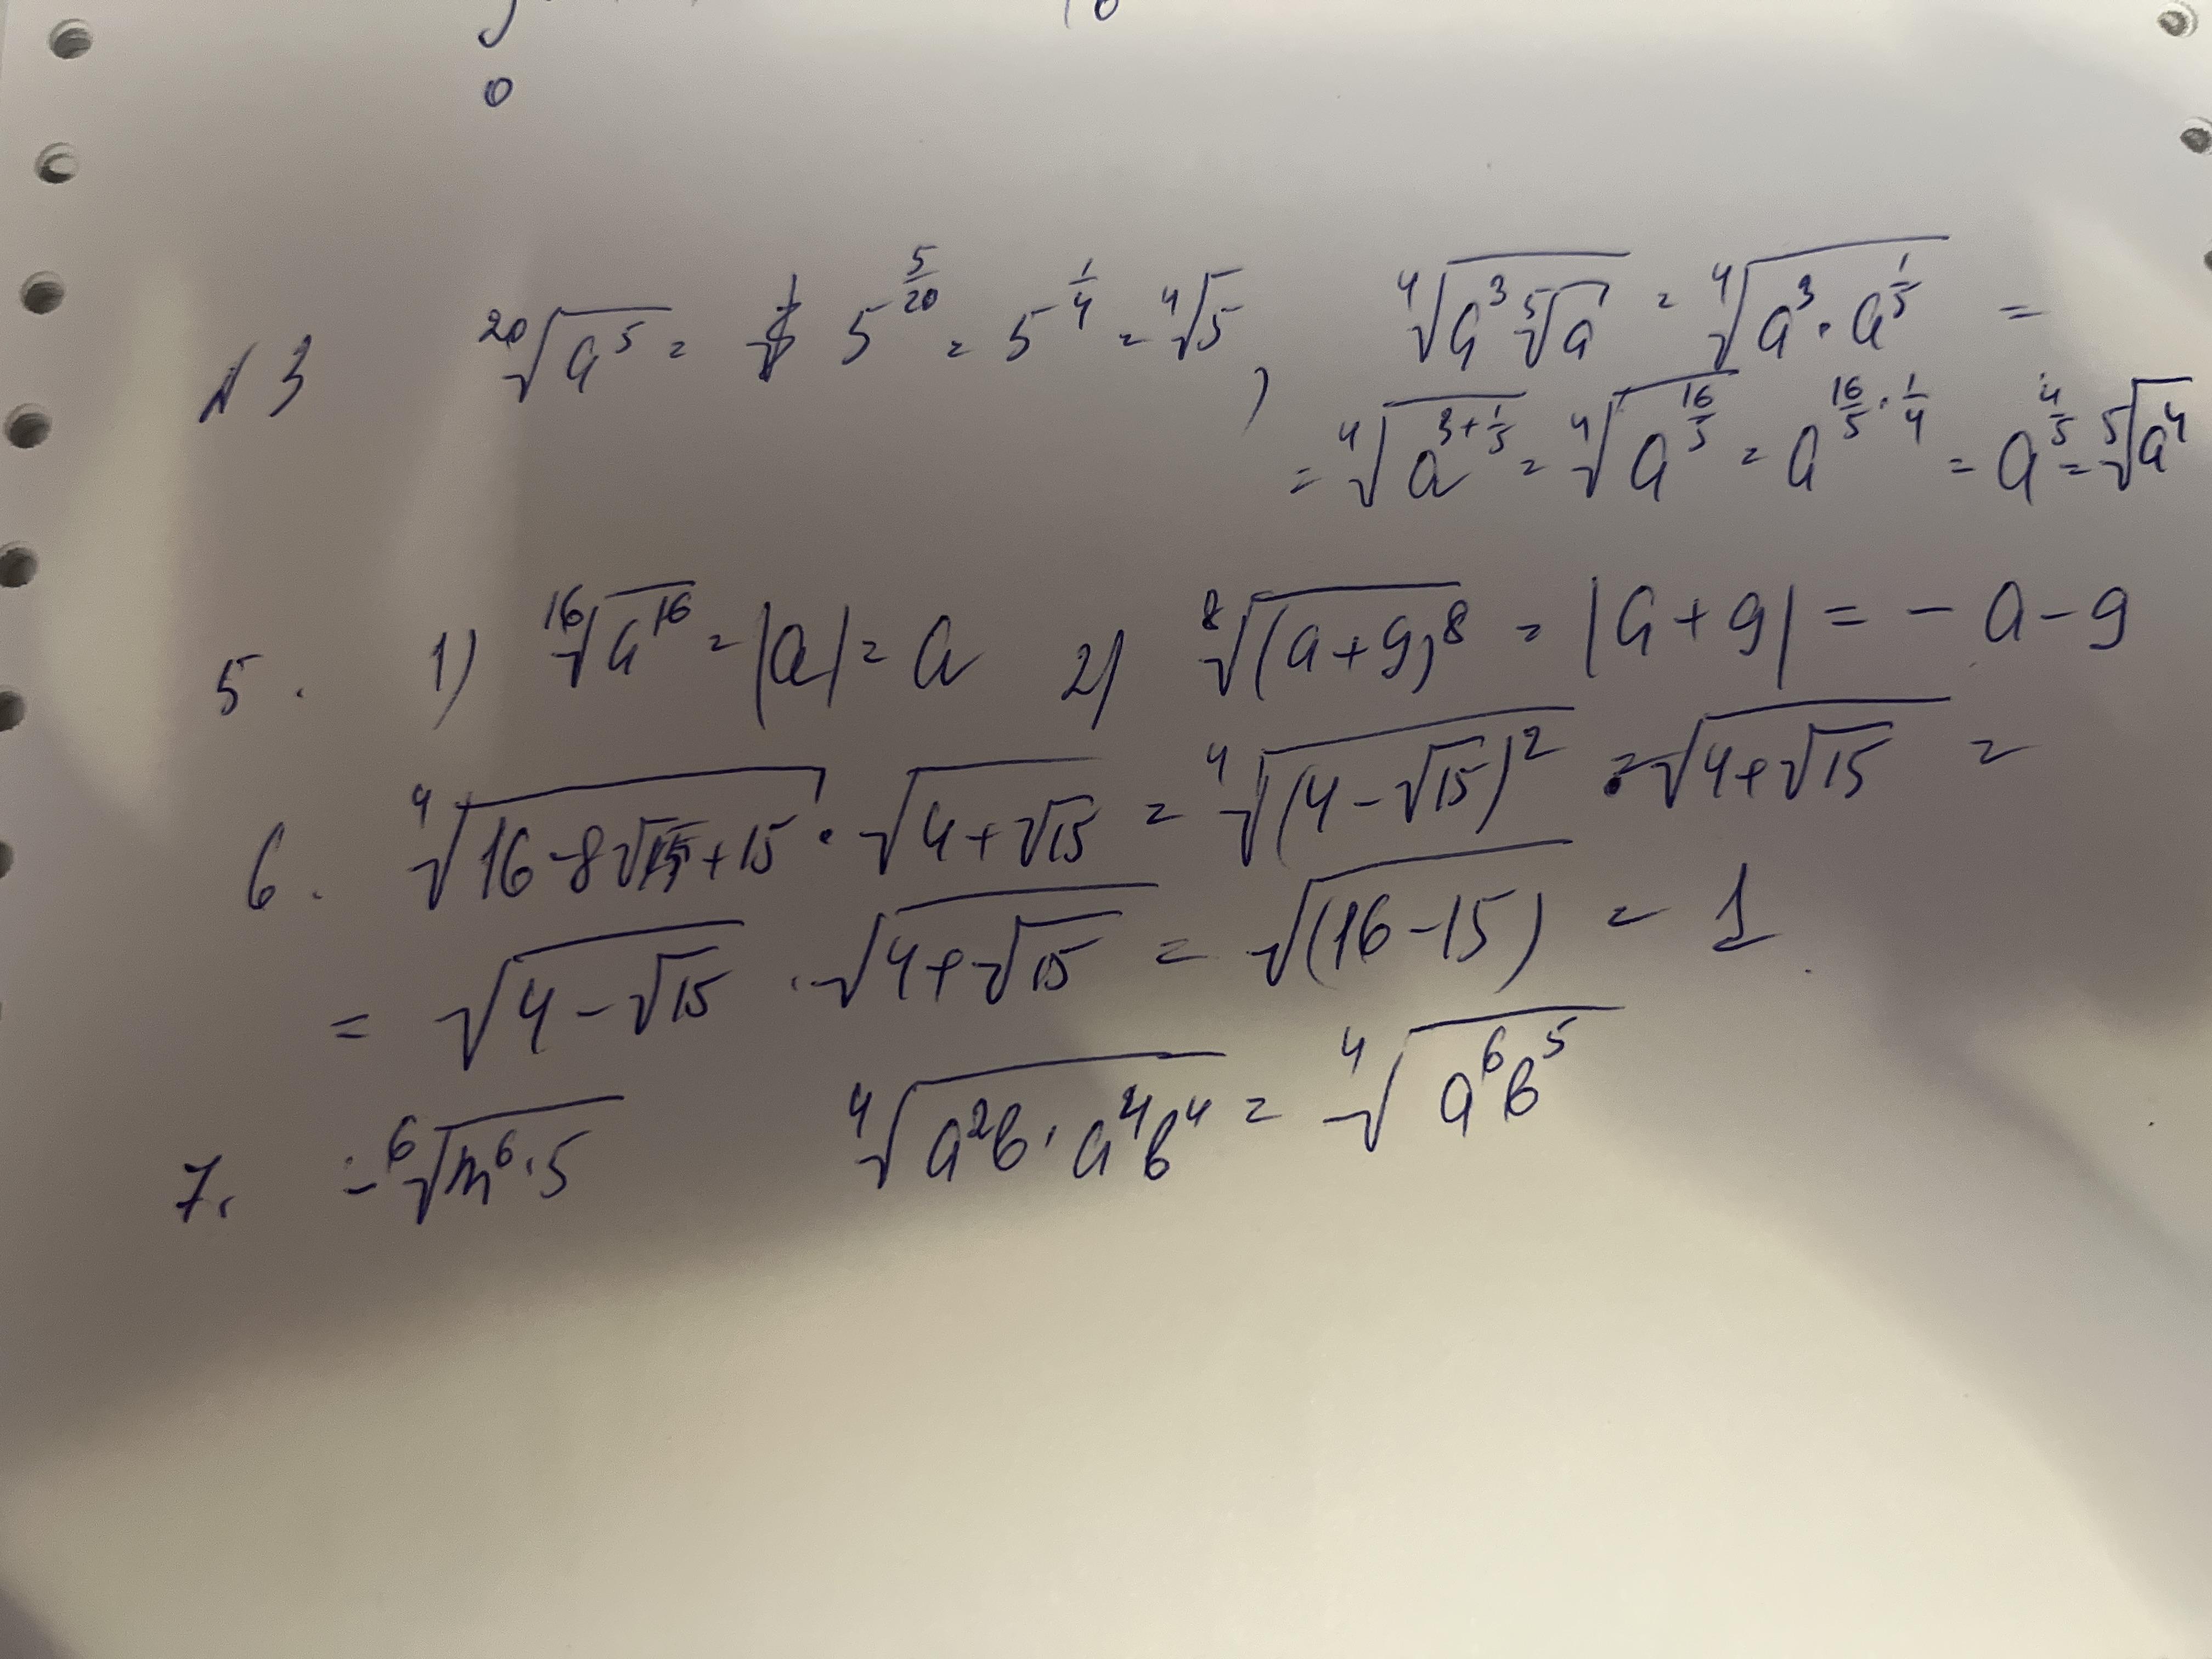 0
N3 ²⁰√(a⁵) = 5^(5/20) = 5^(1/4) = ⁴√5, ⁴√(a³ ⁵√a) = ⁴√(a³ · a^(1/5)) =
= ⁴√(a^(3+1/5)) = ⁴√(a^(16/5)) = a^(16/5 · 1/4) = a^(4/5) = ⁵√(a⁴)
5. 1) ¹⁶√(a¹⁶) = |a| = a 2) ⁸√((a+9)⁸) = |a+9| = -a-9
6. ⁴√(16-8√15+15) · √(4+√15) = ⁴√((4-√15)²) · √(4+√15) =
= √(4-√15) · √(4+√15) = √(16-15) = 1
7. -⁶√(m⁶·5) ⁴√(a²b · a⁴b⁴) = ⁴√(a⁶b⁵)